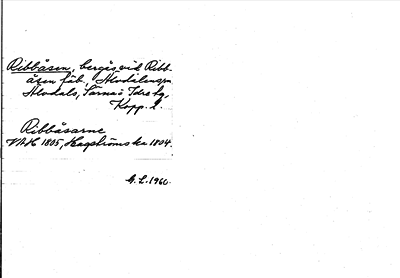 Ribbåsen, bergås vid Ribb-
åsen fäb., Älvdalens sn
Älvdals, Särna o Idre tg,
Kopp. l.
Ribbåsarne
VAH 1805, Hagströms ka 1804.
G.L. 1960.